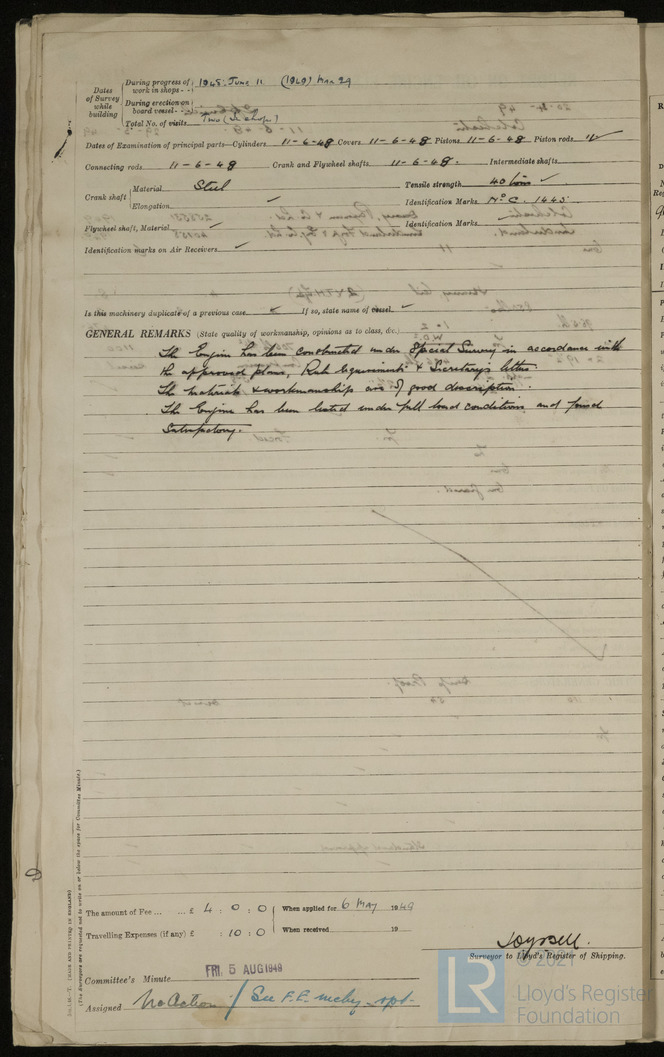 Dates of Survey while building
During progress of work in shops - - 1948. June 11 (1949) Mar 29
During erection on board vessel - - -
Total No. of visits Two (in shops)
Dates of Examination of principal parts—Cylinders 11-6-48 Covers 11-6-48 Pistons 11-6-48 Piston rods ✓
Connecting rods 11-6-48 Crank and Flywheel shafts 11-6-48. Intermediate shafts
Crank shaft Material Steel Tensile strength 40 tons ✓
Elongation ✓ Identification Marks No C. 1443
Flywheel shaft, Material ✓ Identification Marks
Identification marks on Air Receivers ✓
Is this machinery duplicate of a previous case ✓ If so, state name of vessel ✓
GENERAL REMARKS (State quality of workmanship, opinions as to class, &c.)
The Engine has been constructed under Special Survey in accordance with
the approved plans, Rule Requirements & Secretary's letters.
The materials & workmanship are of good description.
The Engine has been tested under full load conditions and found
Satisfactory.
(MADE AND PRINTED IN ENGLAND)
(The Surveyors are requested not to write on or below the space for Committee Minute.)
The amount of Fee ... ... £ 4 : 0 : 0 When applied for 6 MAY 1949
Travelling Expenses (if any) £ : 10 : 0 When received 19
Surveyor to Lloyd's Register of Shipping.
Committee's Minute FRI. 5 AUG 1949
Assigned No Action / See F.E. mchy. rpt.
LR
© 2021
Lloyd's Register
Foundation